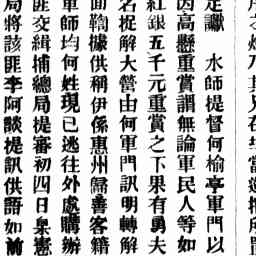 定讞　水師提督何榆亭軍門以
因高懸重賞謂無論軍民人等如
紅銀五千元重賞之下果有勇夫
名捉解大營由何軍門訊明轉解
面鞫據供稱伊係惠州歸善客籍
軍師均何姓現已逃往外處購辦
匪交緝捕總局提審初四日臬憲
局將該匪李阿談提訊供語如前